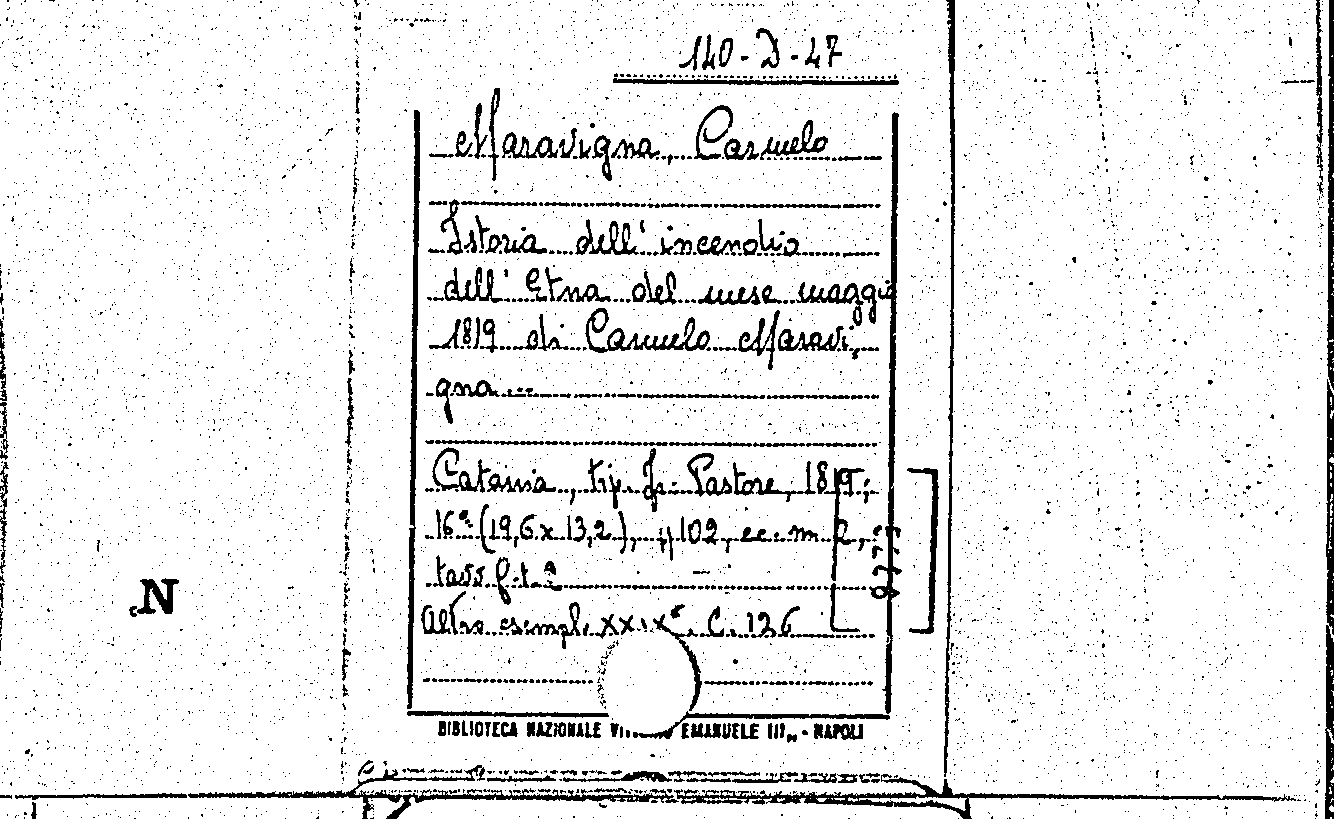 140-D-47
Maravigna, Carmelo
Istoria dell' incendio
dell' Etna del mese maggio
1819 di Carmelo Maravi,
gna...
Catania, tip. Fr. Pastore, 1819;
16° (19,6 x 13,2), pp 102, ec. m 2,
tavv f.t.
Altro esempl. XXIX. C. 126
N
BIBLIOTECA NAZIONALE EMANUELE III - NAPOLI